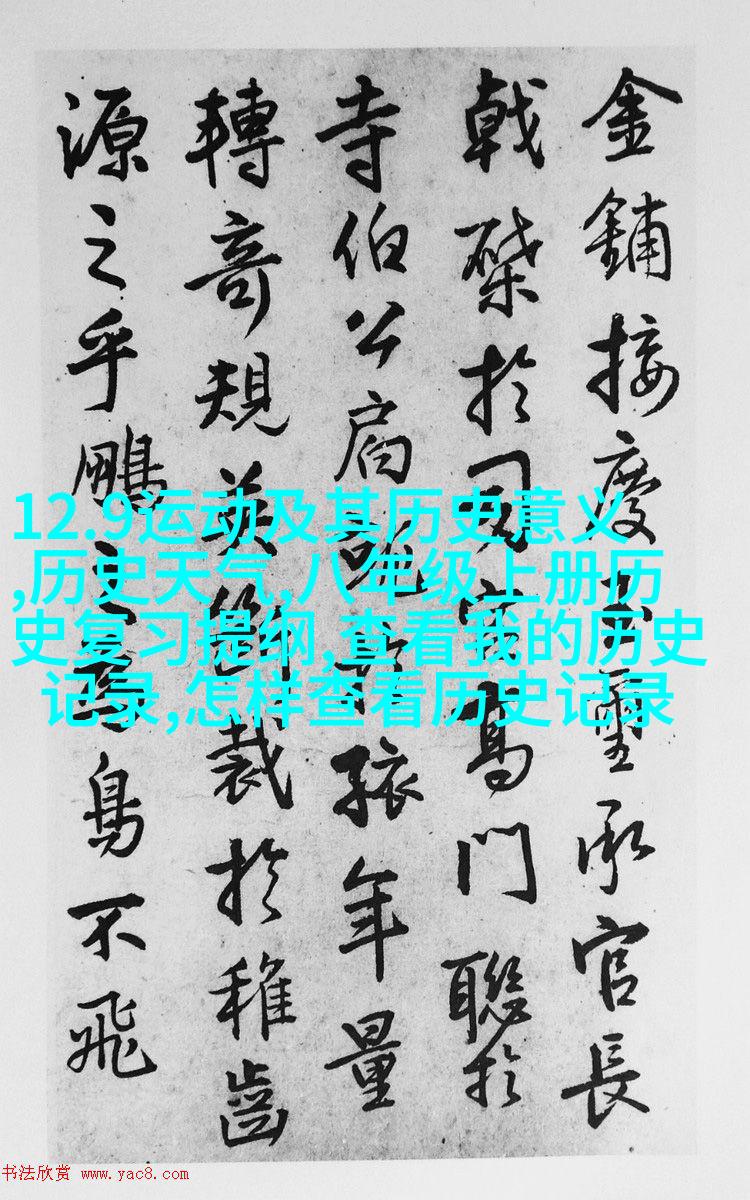 金鋪接慶璽承官長
戟於司門聯於
寺伯公孩年量
轉奇規英裁於稚齒
源之乎鵬鳥不飛
12.9运动及其历史意义
,历史天气,八年级上册历
史复习提纲,查看我的历史
记录,怎样查看历史记录
书法欣赏 www.yac8.com